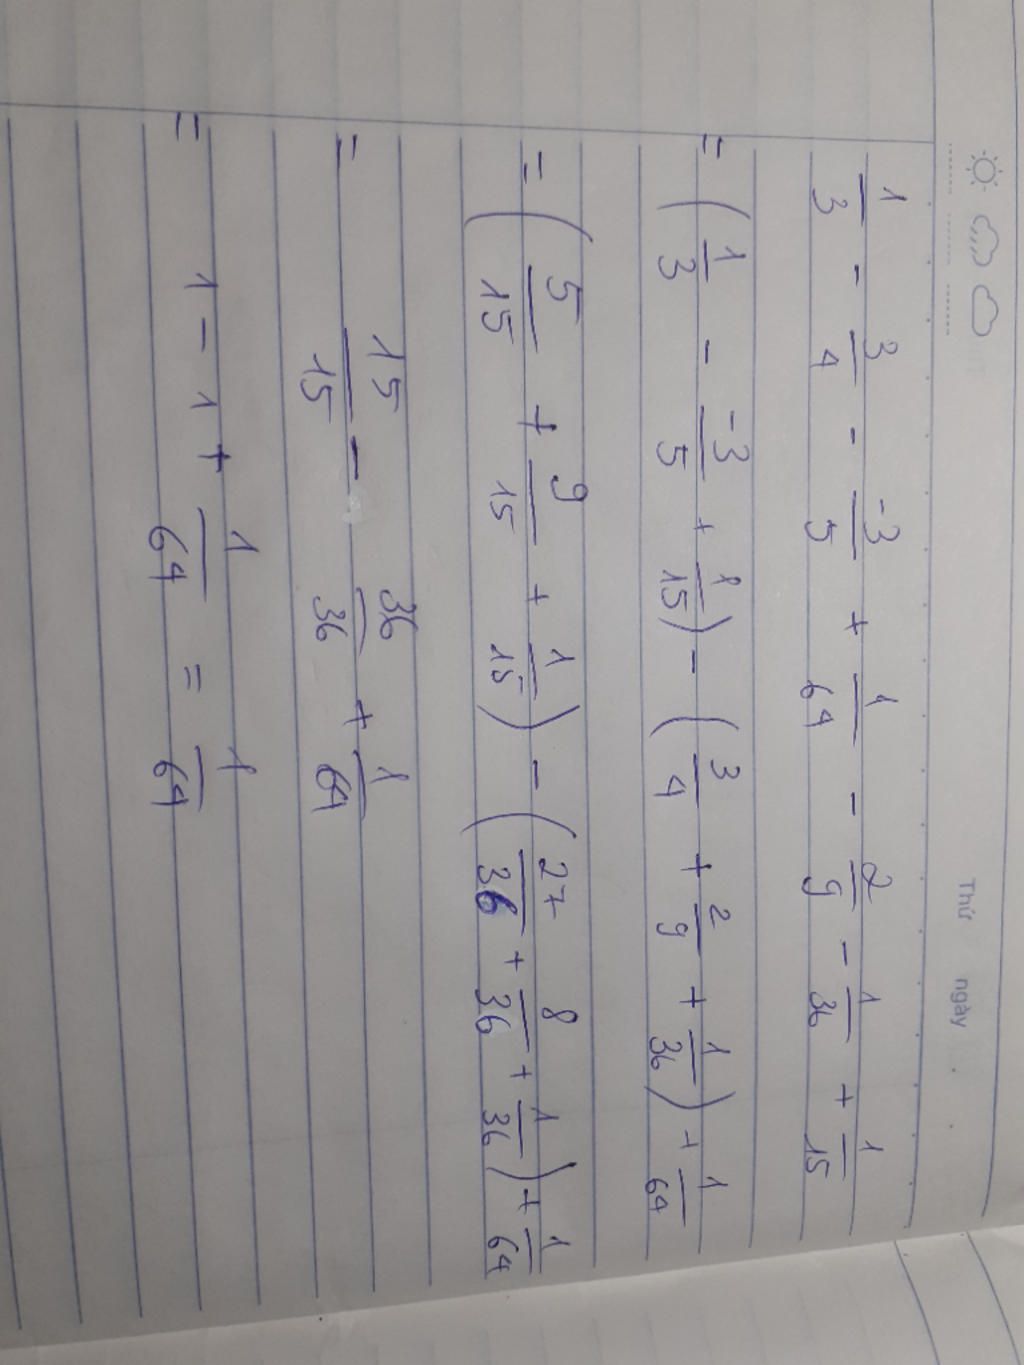 Thứ ngày
1/3 - 3/4 - -3/5 + 1/64 - 2/9 - 1/36 + 1/15
= (1/3 - -3/5 + 1/15) - (3/4 + 2/9 + 1/36) + 1/64
= (5/15 + 9/15 + 1/15) - (27/36 + 8/36 + 1/36) + 1/64
= 15/15 - 36/36 + 1/64
= 1 - 1 + 1/64 = 1/64